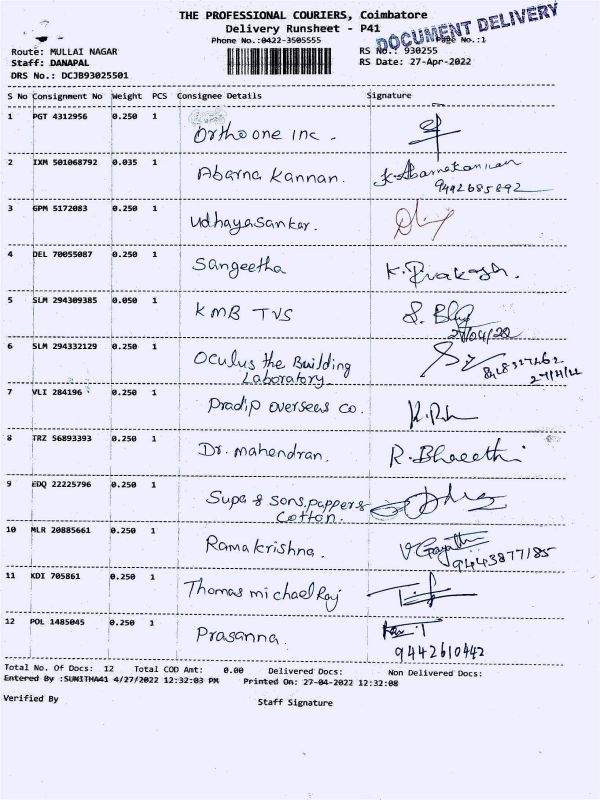 THE PROFESSIONAL COURIERS, Coimbatore
Delivery Runsheet - P41
DOCUMENT DELIVERY
Phone No.:0422-3505555 Page No.:1
Route: MULLAI NAGAR RS No.: 930255
Staff: DANAPAL RS Date: 27-Apr-2022
DRS No.: DCJB93025501
S No Consignment No Weight PCS Consignee Details Signature
1 PGT 4312956 0.250 1 Ortho one inc.
2 IXM 501068792 0.035 1 Abarna Kannan. K. Abarnakannan
9442685892
3 GPM 5172083 0.250 1 Udhayasankar.
4 DEL 70055087 0.250 1 Sangeetha K. Prakash.
5 SLM 294309385 0.050 1 KMB TVS
27/04/22
6 SLM 294332129 0.250 1 Oculus the Building
Laboratory 8428327462
27/4/22
7 VLI 284196 0.250 1 Pradip overseas co.
8 TRZ 56893393 0.250 1 Dr. mahendran. R. Bhaeethi
9 EDQ 22225796 0.250 1 Supa & sons.pappers
Cotton.
10 MLR 20885661 0.250 1 Ramakrishna. V Gayathri
9443877185
11 KDI 705861 0.250 1 Thomas michael Raj
12 POL 1485045 0.250 1 Prasanna.
9442610442
Total No. Of Docs: 12 Total COD Amt: 0.00 Delivered Docs: Non Delivered Docs:
Entered By :SUNITHA41 4/27/2022 12:32:03 PM Printed On: 27-04-2022 12:32:08
Verified By Staff Signature